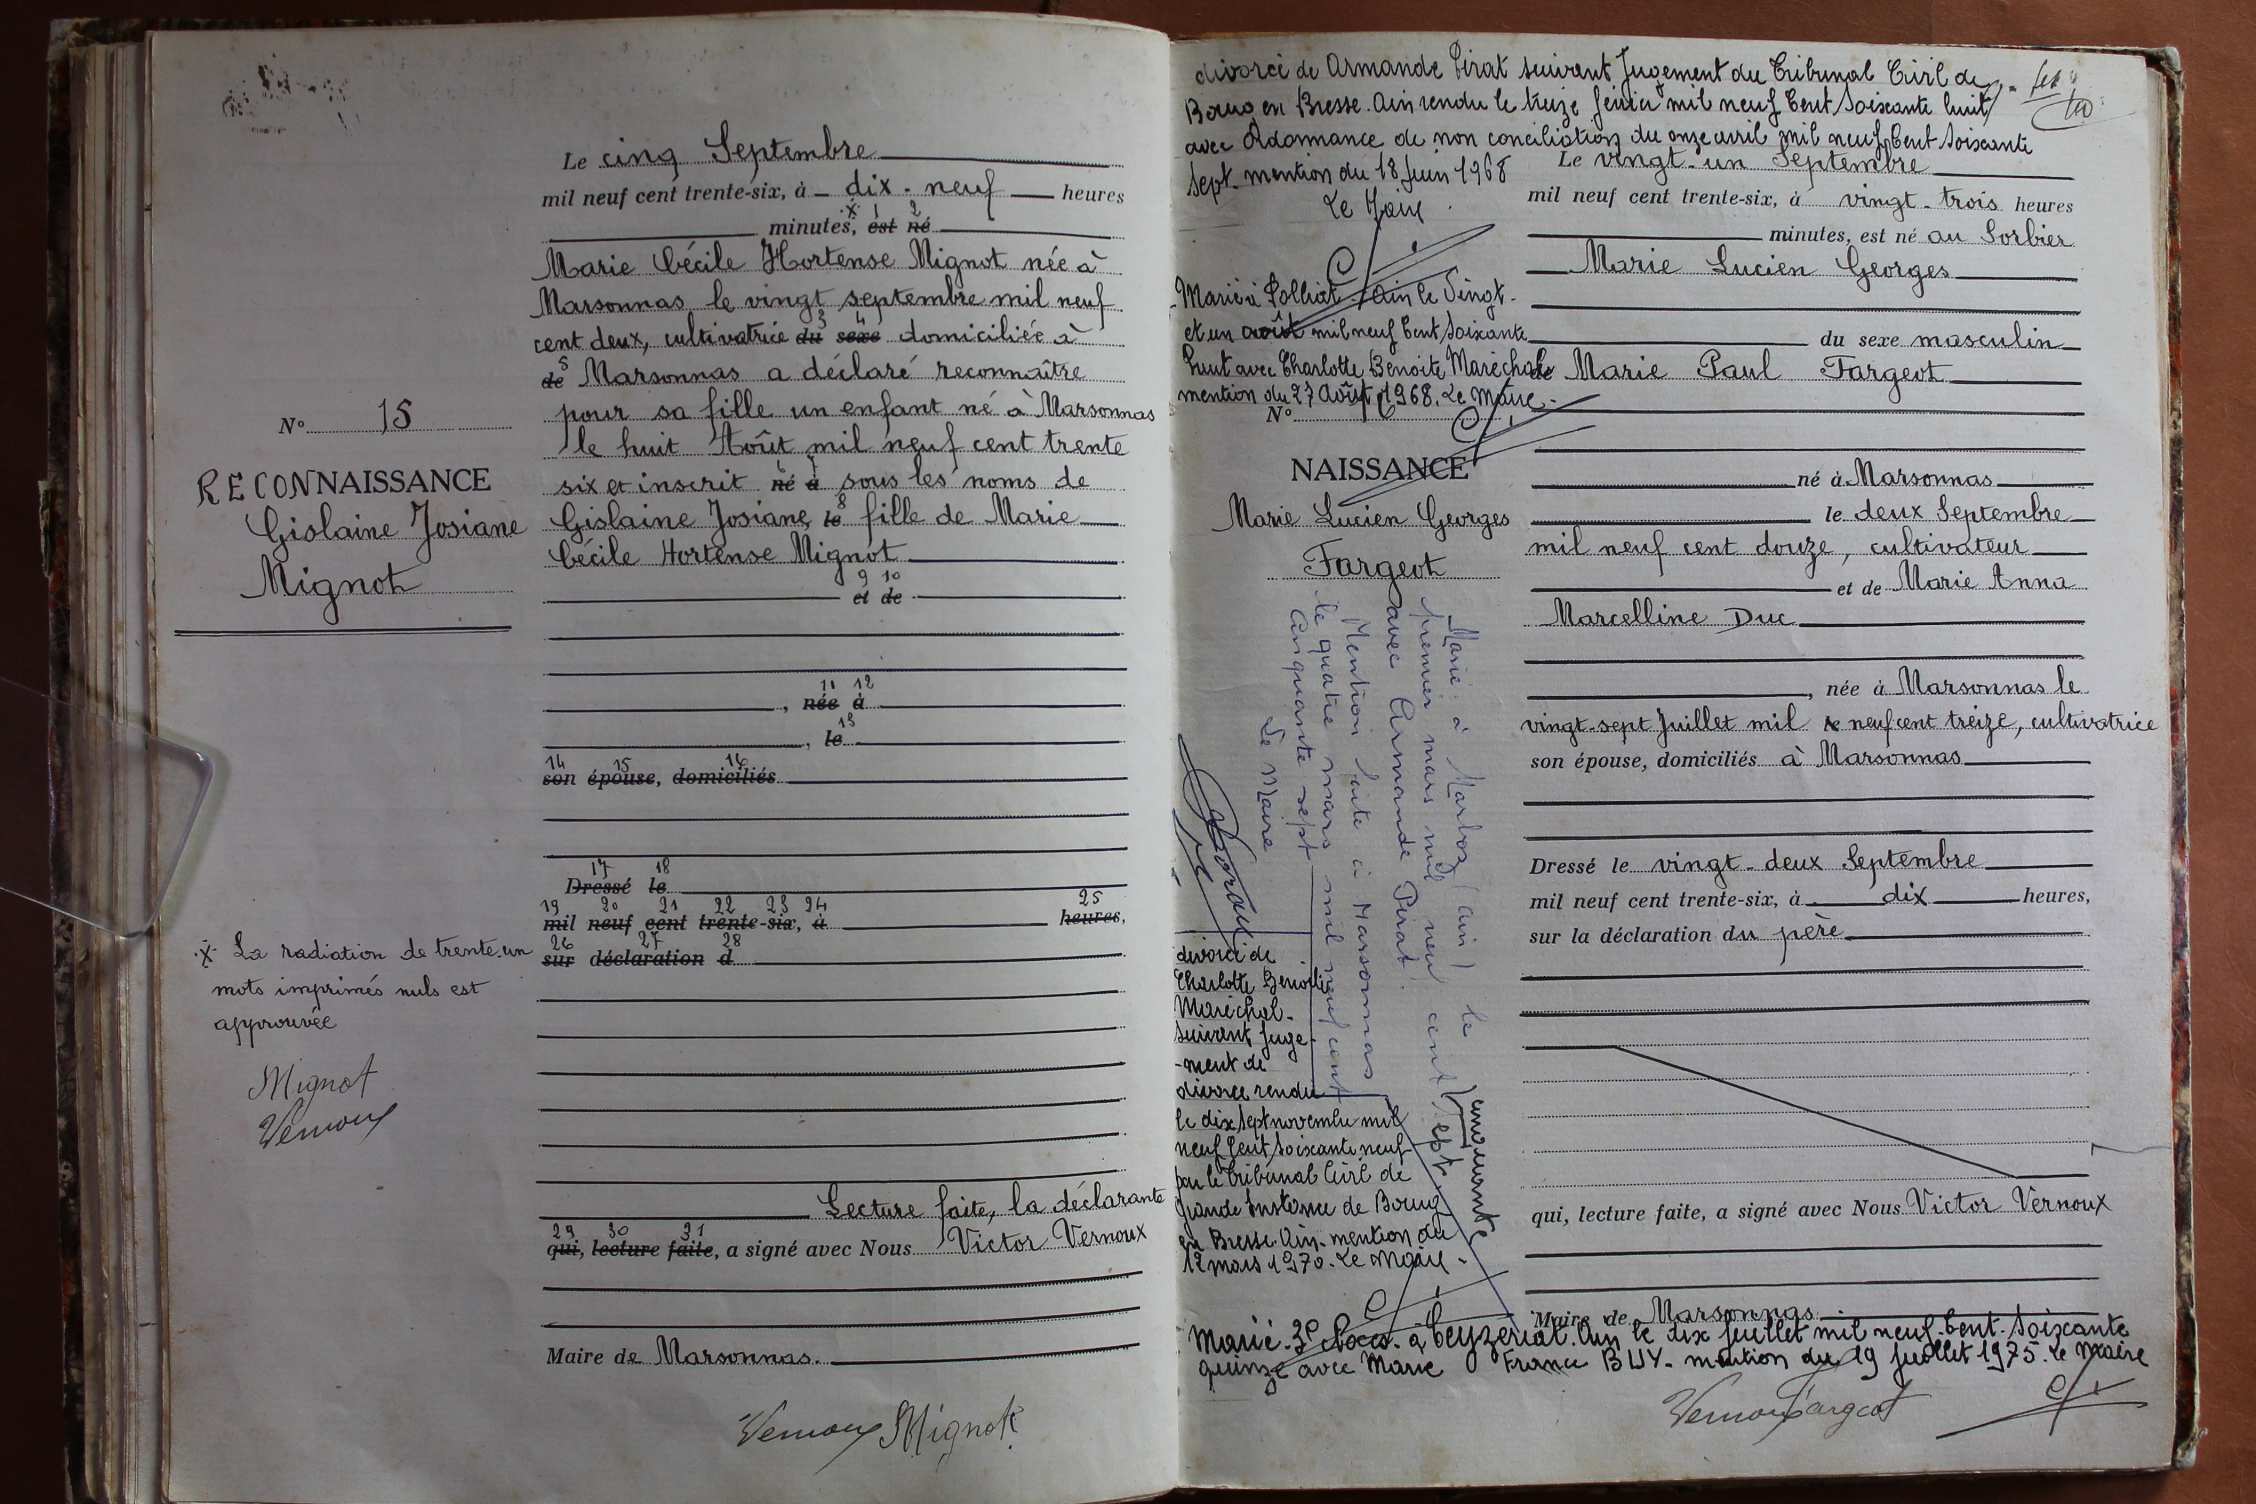 Le cinq Septembre
mil neuf cent trente-six, à dix-neuf heures
x 1 2
minutes, est né
Marie Cécile Hortense Mignot née à
Marsonnas le vingt septembre mil neuf
3 4
cent deux, cultivatrice du sexe domiciliée à
5
de Marsonnas a déclaré reconnaître
pour sa fille un enfant né à Marsonnas
le huit Août mil neuf cent trente
6 7
six et inscrit né à sous les noms de
8
Gislaine Josiane, le fille de Marie
Cécile Hortense Mignot
9 10
et de
11 12
, née à
13
, le
14 15 16
son épouse, domiciliés
17 18
Dressé le
19 20 21 22 23 24 25
mil neuf cent trente-six, à heures,
26 27 28
sur déclaration d
Lecture faite, la déclarante
29 30 31
qui, lecture faite, a signé avec Nous Victor Vernoux
Maire de Marsonnas.
Vernoux Mignot
N° 15
RECONNAISSANCE
Gislaine Josiane
Mignot
x La radiation de trente-un
mots imprimés nuls est
approuvée
Mignot
Vernoux
divorcé de Armande Pirat suivant Jugement du Tribunal Civil de
Bourg en Bresse. Ain rendu le treize février mil neuf Cent Soixante huit
avec Ordonnance de non conciliation du onze avril mil neuf Cent Soixante
Sept. mention du 18 Juin 1968
Le Maire
Marié à Polliat Ain le Vingt-
et un août mil neuf Cent Soixante
huit avec Charlotte Benoite Maréchal
mention du 27 Août 1968. Le Maire.
N°
NAISSANCE
Marie Lucien Georges
Fargeot
Marié à Marboz (ain) le
premier mars mil neuf cent cinquante sept
avec Armande Pirat.
Mention faite à Marsonnas
le quatre mars mil neuf cent
cinquante sept
Le Maire
divorcé de
Charlotte Benoîte
Maréchal-
suivant Juge-
-ment de
divorce rendu
le dix sept novembre mil
neuf Cent Soixante neuf
par le Tribunal Civil de
Grande Instance de Bourg
en Bresse. Ain. mention du
12 mars 1970. Le Maire.
Le vingt-un Septembre
mil neuf cent trente-six, à vingt-trois heures
minutes, est né au Sorbier
Marie Lucien Georges
du sexe masculin
de Marie Paul Fargeot
né à Marsonnas
le deux Septembre
mil neuf cent douze, cultivateur
et de Marie Anna
Marcelline Duc
, née à Marsonnas le
vingt-sept Juillet mil le neuf cent treize, cultivatrice
son épouse, domiciliés à Marsonnas
Dressé le vingt-deux Septembre
mil neuf cent trente-six, à dix heures,
sur la déclaration du père
qui, lecture faite, a signé avec Nous Victor Vernoux
Maire de Marsonnas
Marié à Ceyzeriat. Ain le dix juillet mil neuf-Cent-Soixante
quinze avec Marie France BUY- mention du 19 juillet 1975. Le maire
Vernoux Fargeot